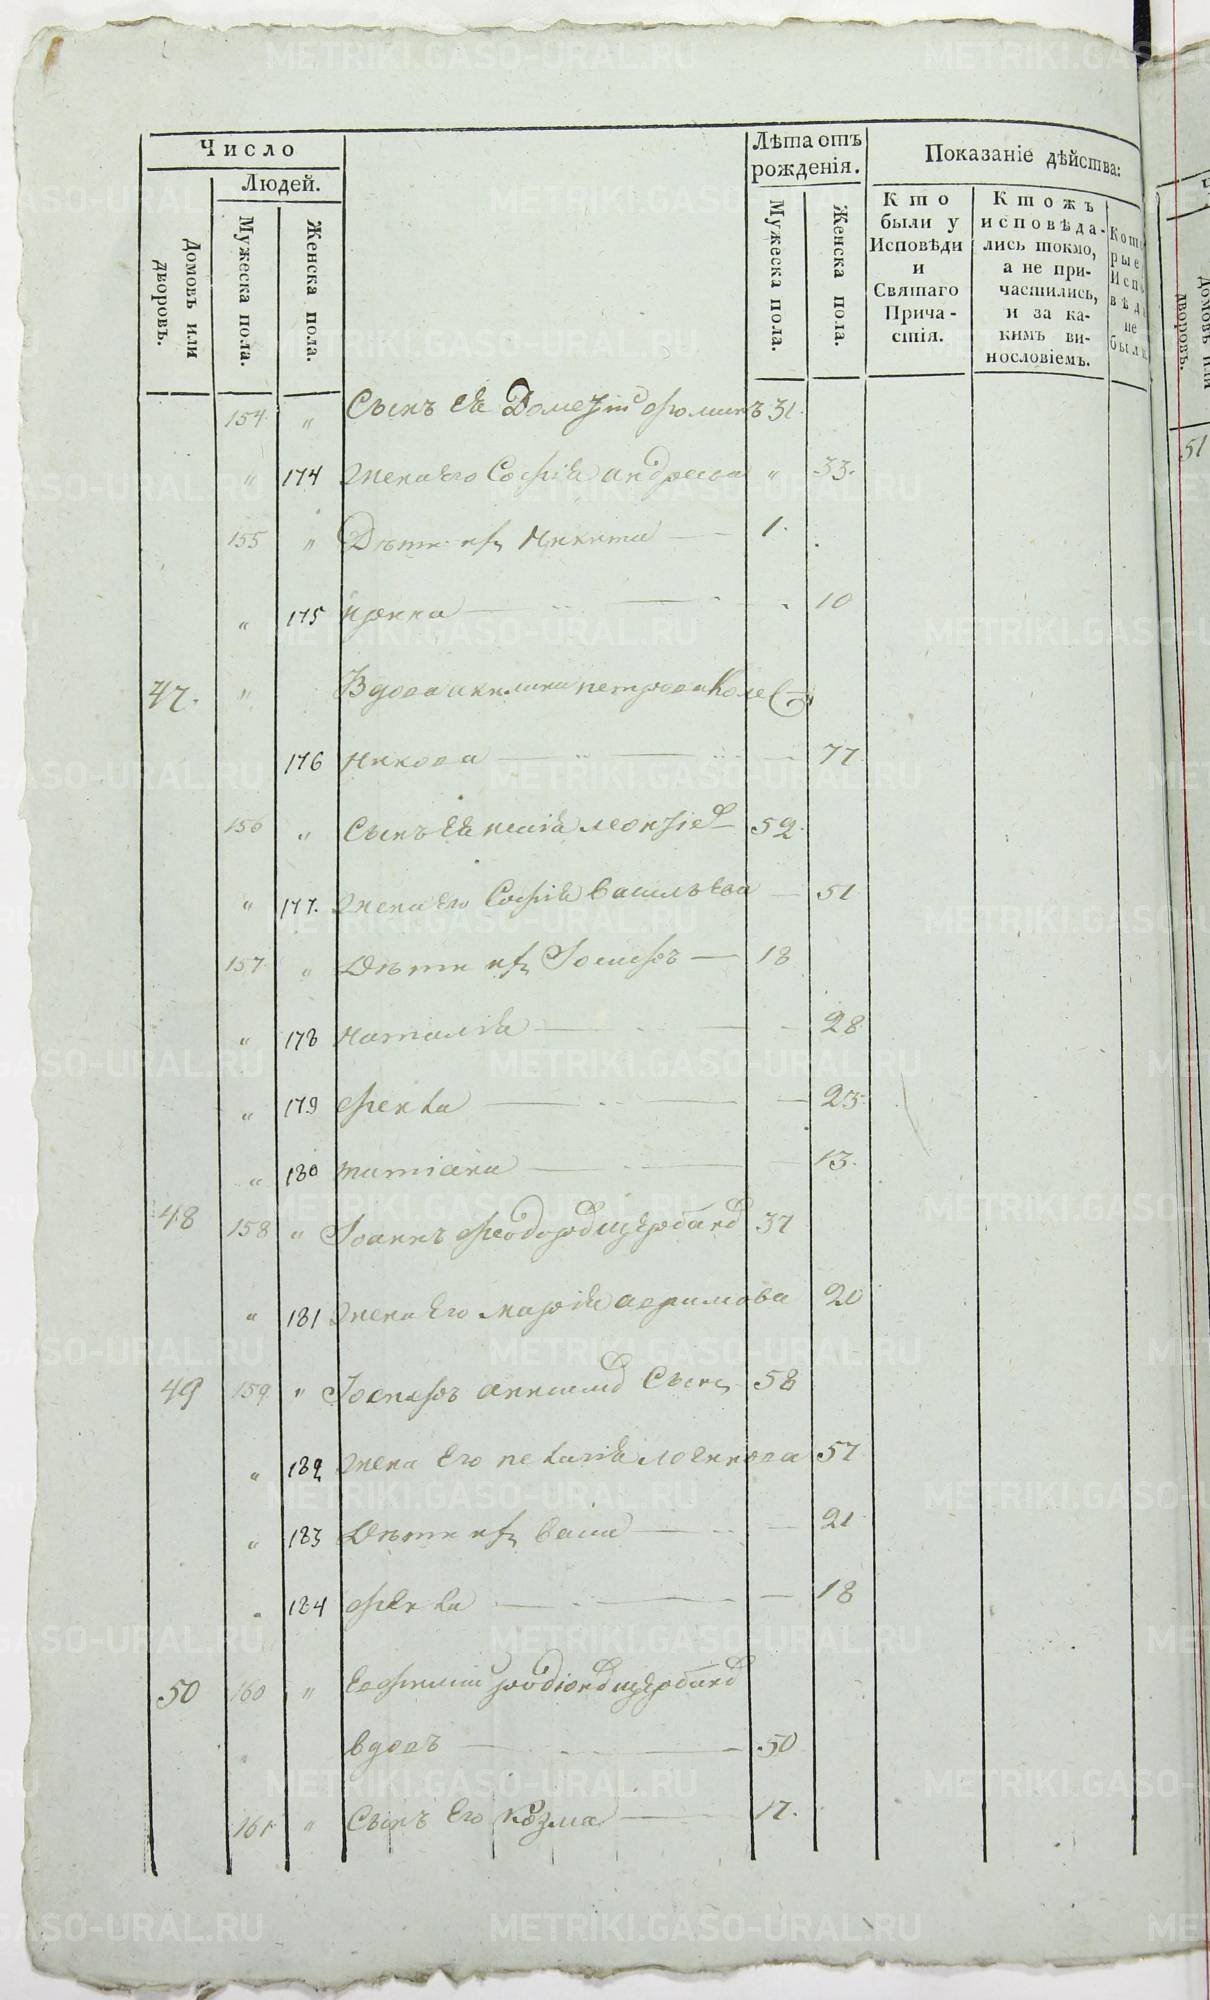 Число
Людей.
Домовъ или дворовъ.
Мужеска пола.
Женска пола.
Лѣта отъ рожденія.
Мужеска пола.
Женска пола.
Показаніе дѣйства:
Кто были у Исповѣди и Святаго Прича-стія.
Ктожъ исповѣда-лись токмо, а не при-частились, и за ка-кимъ ви-нословіемъ.
Кото рые Исп вѣд не был
154 " Сынъ ея фоминъ 31.
" 174 жена его Софія андреева " 33.
155 " Дѣти ихъ Никита 1.
" 175 10
47. " Вдова акилина петрова
176 77
156 " Сынъ ея леонтіев 52.
" 177. жена его Софія васильева 51
157 " Дѣти ихъ Іосифъ 18
" 178 наталія 28
" 179 фекла 23.
" 180 татіана 13.
48 158 " Іоаннъ феодоров щербаков 37
" 181 жена его марія 20
49 159 " Іосифъ Сынъ 58
" 182 жена Его пелагія логинова 57
" 183 Дѣти ихъ васса 21
" 184 фекла 18
50 160 " Евфимій родіонов щербаков
вдовъ 50
161 " Сынъ Его козма 17.
51
Домовъ или дворовъ.
METRIKI.GASO-URAL.RU